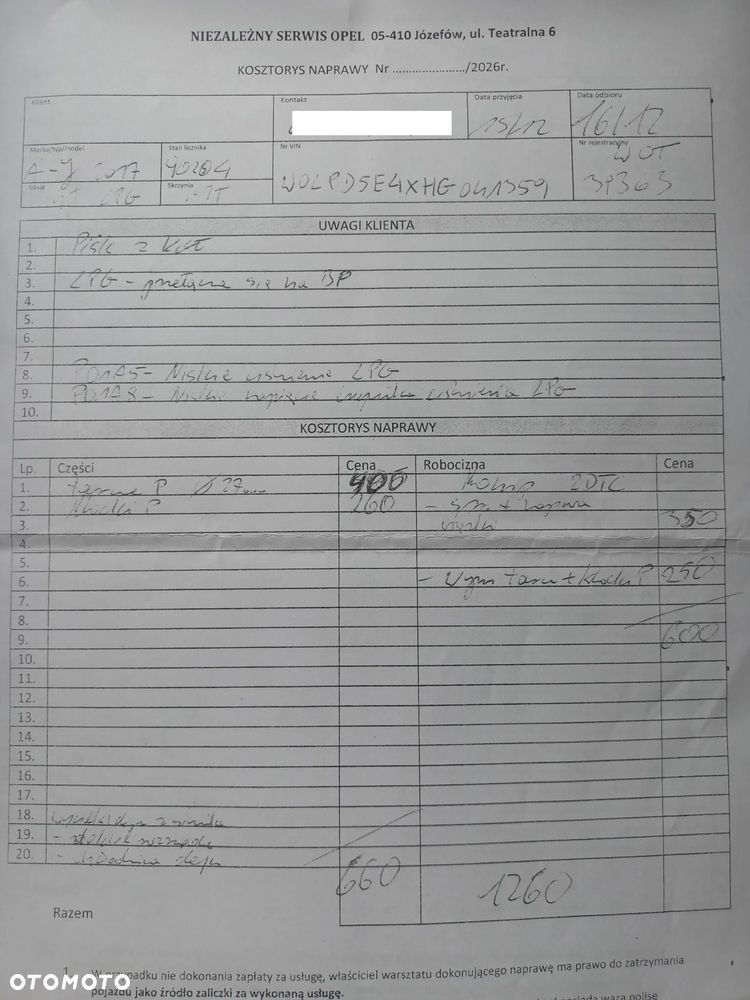 NIEZALEŻNY SERWIS OPEL 05-410 Józefów, ul. Teatralna 6
KOSZTORYS NAPRAWY Nr ...................../2026r.
Klient
Kontakt
Data przyjęcia
Data odbioru
15/12
16/12
Marka/typ/model
Stan licznika
Nr VIN
Nr rejestracyjny
A-J 2017
90204
W0LPD5E4XHG041359
WOT
3P363
Silnik
LPG
Skrzynia
MT
UWAGI KLIENTA
1. Pisk z kół
2.
3. LPG - przełącza się na BP
4.
5.
6.
7.
8. P01A5 - Niskie ciśnienie LPG
9. P01A8 - Niskie napięcie ciśnienia LPG
10.
KOSZTORYS NAPRAWY
Lp. Części Cena Robocizna Cena
1. tarcze P 400
2. Klocki P 260 - spr. + naprawa
3. 350
4.
5.
6. - Wym tarcz + klocki P 250
7.
8.
9. 600
10.
11.
12.
13.
14.
15.
16.
17.
18. wycieki oleju z silnika
19. -
20. - oleju
660 1260
Razem
1. W przypadku nie dokonania zapłaty za usługę, właściciel warsztatu dokonującego naprawę ma prawo do zatrzymania
pojazdu jako źródło zaliczki za wykonaną usługę.
OTOMOTO